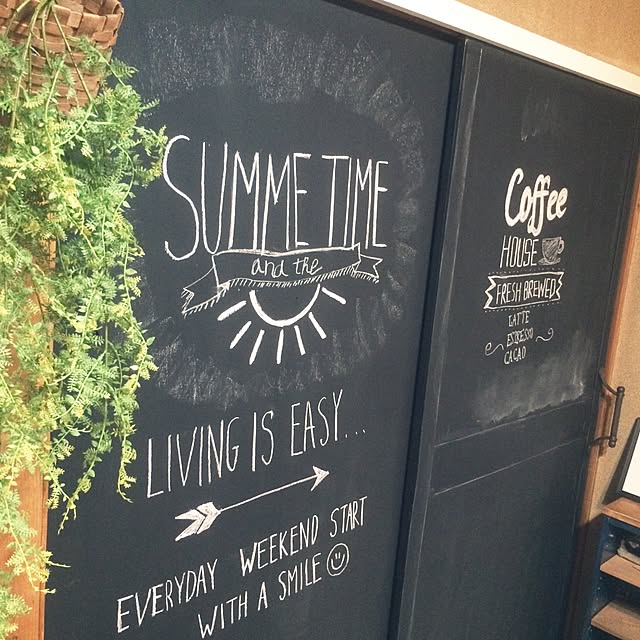 SUMME TIME
and the
LIVING IS EASY...
EVERYDAY WEEKEND START
WITH A SMILE
Coffee
HOUSE
FRESH BREWED
LATTE
ESPRESSO
CACAO